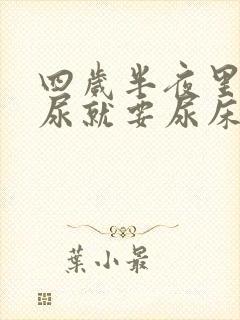 四歲半夜里
尿就要尿床
葉小最